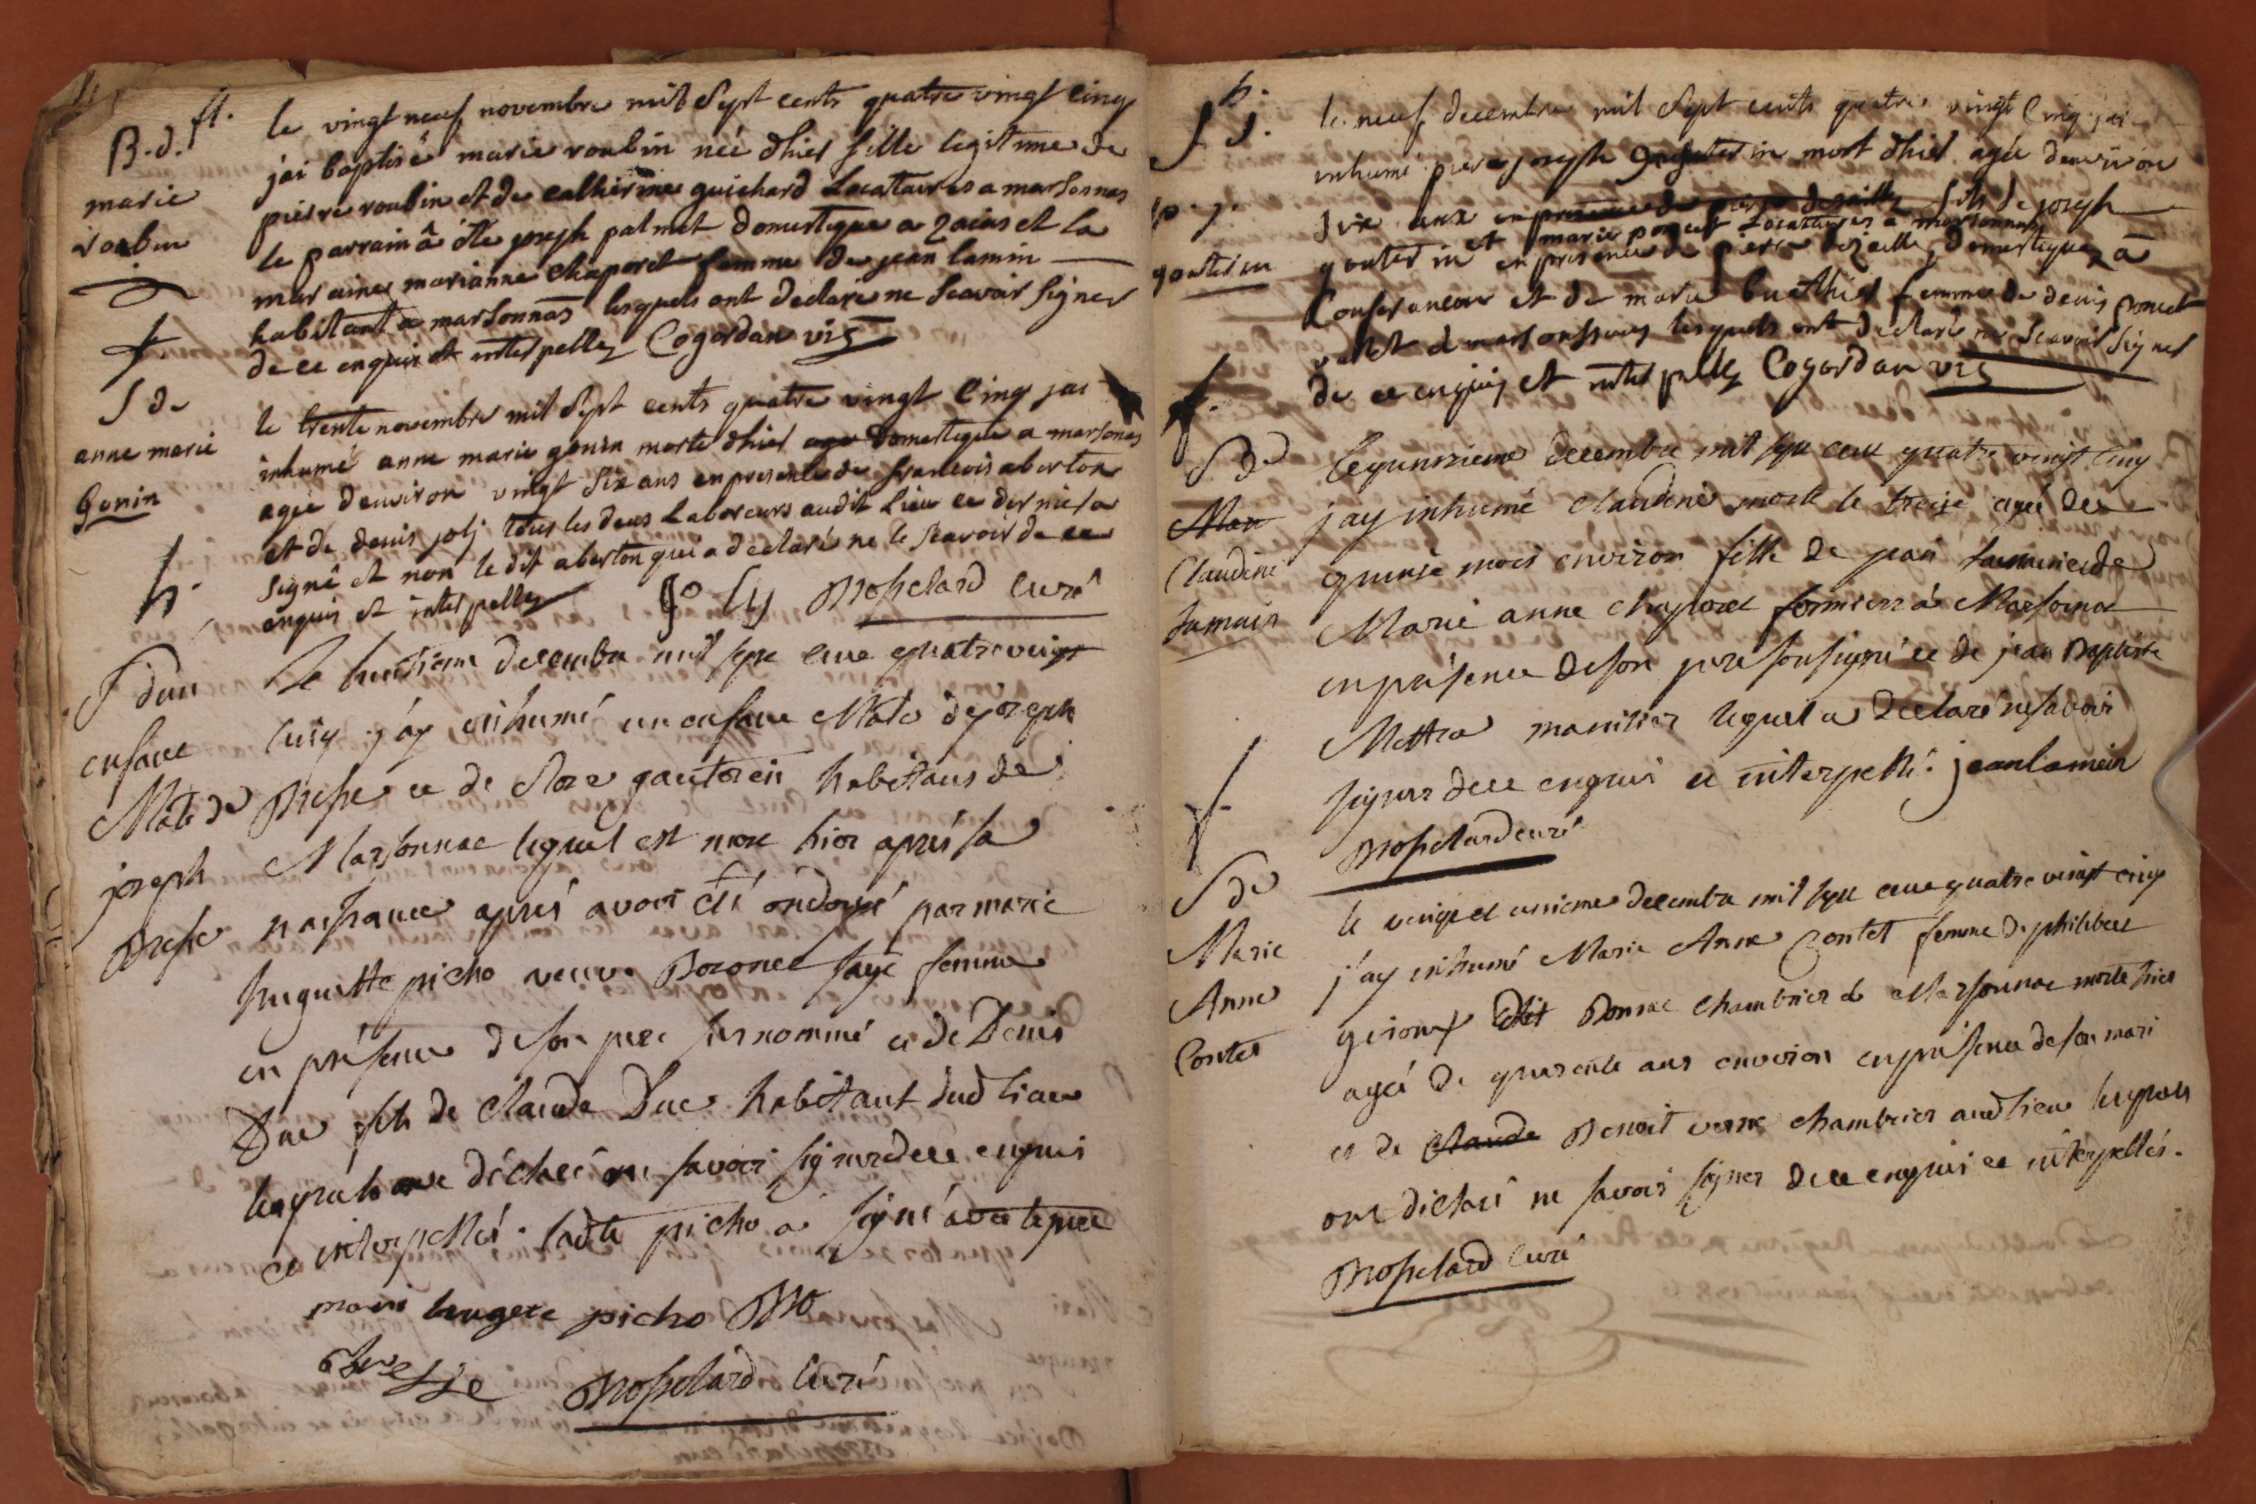 B. d. f.
marie
roubin
le vingt neuf novembre mil Sept cents quatre vingt cinq
jai baptisé marie roubin née d'hier fille legitime de
pierre roubin et de catherine guichard Locataires a marsonnas
le parrain a été joseph palmet domestique a et la
maraine marianne chaporet femme de jean lamin
habitant a marsonnas lesquels ont declaré ne Scavoir Signer
de ce enquis et interpellez Cogordan vic
S de
anne marie
Gonin
le trente novembre mil Sept cents quatre vingt Cinq jai
inhumé anne marie gonin morte d'hier domestique a marsonas
agée denviron vingt Six ans en presence de francois aberton
et de denis joly tous les deux Laboreurs audit Lieu ce dernier a
Signé et non le dit aberton qui a declaré ne le Scavoir de ce
enquis et interpellez
joly Mosselard curé
S d'un
enfant
Male de
joseph
Le huitieme decembre mil sept cent quatre vingt
cinq j'ay inhumé un enfant Male de joseph
et de Clore gauterin habitans de
Marsonnac lequel est mort hier aprés sa
naissance aprés avoir été ondoyé par marie
huguette picho veuve sage femme
en présence de son pere surnommé et de Denis
Duc fils de Claude Duc habitant dud lieu
lesquels ont déclaré ne savoir signer de ce enquis
et interpellés. ladte picho a signé
hugete picho
Mosselard Curé
S h.
j.
p. j.
gouterin
le neuf decembre mil Sept cents quatre vingt Cinq jai
inhumé pierre joseph gouterin mort d'hier agée denviron
dix ans en presence de pierre dezaille fils de joseph
gouterin et marie poncet Locataires a marsonnas
en presence de pierre dezaille domestique a
Confrancon et de marie buathier femme de denis poncet
valet a marsonnas lesquels ont declaré ne Scavoir Signer
de ce enquis et interpellez Cogordan vic
S de
Mar
Claudine
Lamain
Le quinzieme decembre mil sept cent quatre vingt cinq
j'ay inhumé Claudine morte le treize agée de
quinze mois environ fille de jean Lamin et de
Marie anne chaporet fermiers à Marsonnas
en présence de son pere soussigné et de jean Baptiste
Mettra manilier lequel a declaré ne savoir
signer de ce enquis et interpellé. jean lamain
Mosselard curé
S de
Marie
Anne
Contet
le vingt et unieme decembre mil sept cent quatre vingt cinq
j'ay inhumé Marie Anne Contet femme de philibert
giroux dit Chambrier de Marsonnac morte hier
agée de quarente ans environ en présence de son mari
et de Claude Benoit verne chambrier aud lieu lesquels
ont déclaré ne savoir signer de ce enquis et interpellés.
Mosselard Curé